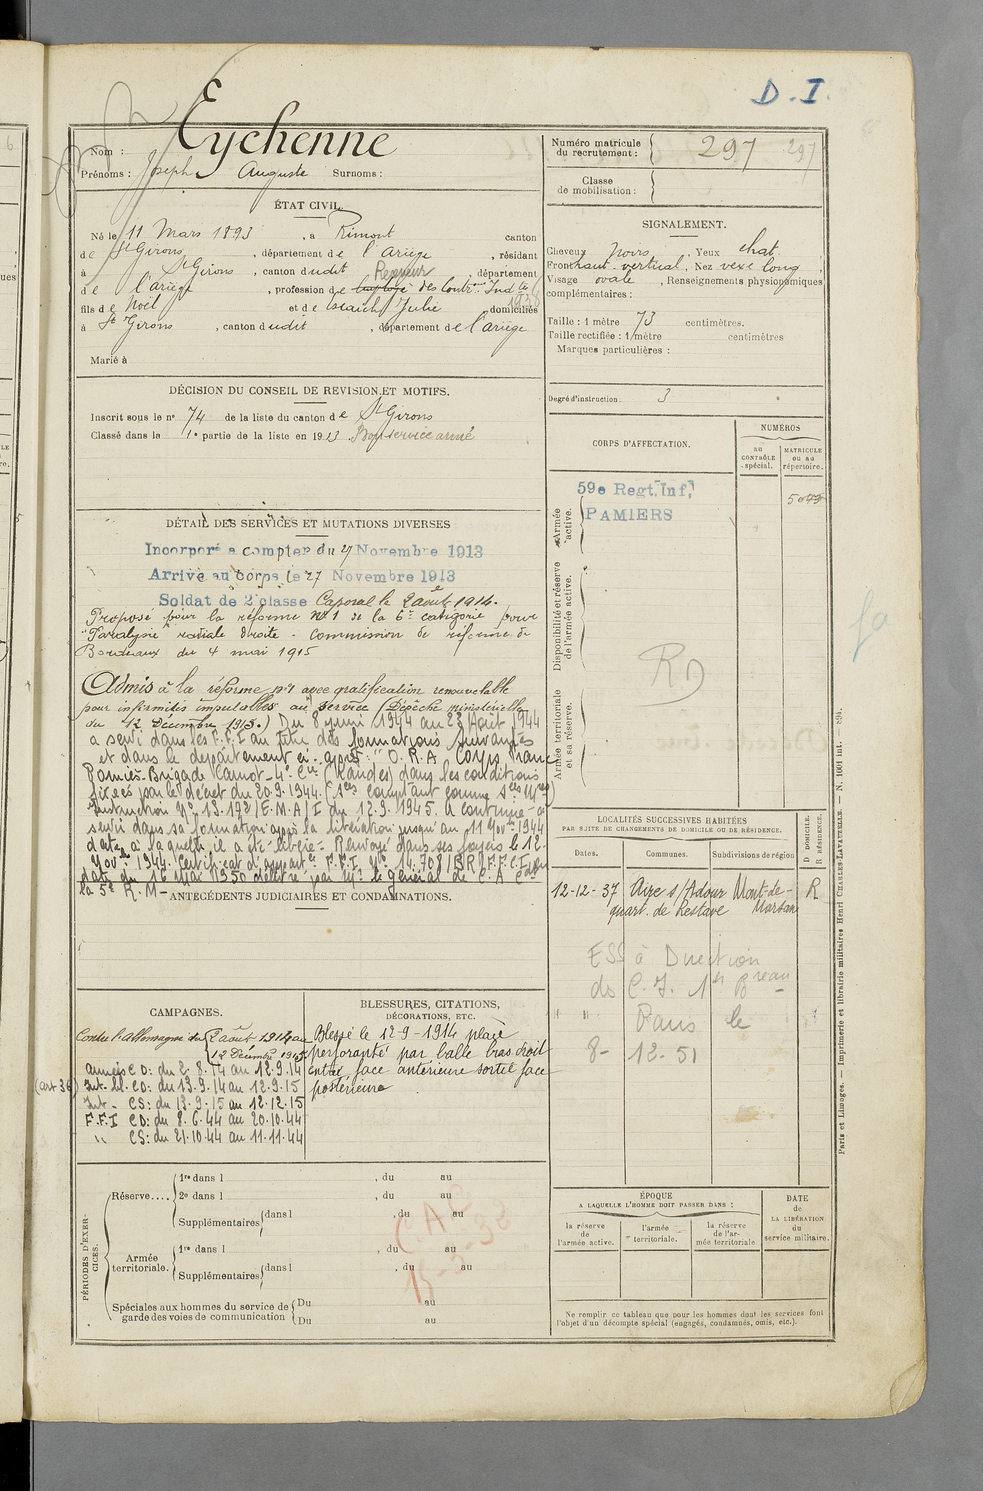 D.I.
Eychenne
Nom :
Prénoms : Joseph Auguste Surnoms :
Numéro matricule du recrutement : 297 297
Classe de mobilisation :
ÉTAT CIVIL.
Né le 11 Mars 1893, à Rimont canton
de St Girons, département de l'Ariège, résidant
à St Girons, canton dudit, département
Receveur
de l'ariège, profession de employé des Contr. Indtes
1938
fils de Noël et de Julie domiciliés
à St Girons, canton dudit, département de l'ariège
Marié à
SIGNALEMENT.
Cheveux noirs, Yeux chat.
Front haut vertical, Nez vexe long,
Visage ovale, Renseignements physionomiques
complémentaires :
Taille : 1 mètre 73 centimètres.
Taille rectifiée : 1 mètre centimètres
Marques particulières :
Degré d'instruction : 3
DÉCISION DU CONSEIL DE REVISION ET MOTIFS.
Inscrit sous le no 74 de la liste du canton de St Girons
Classé dans la 1e partie de la liste en 1913. Bon service armé
DÉTAIL DES SERVICES ET MUTATIONS DIVERSES
Incorporé à compter du 27 Novembre 1913
Arrivé au corps le 27 Novembre 1913
Soldat de 2e classe Caporal le 2 août 1914.
Proposé pour la réforme no 1 de la 6e catégorie pour
"Paralysie" radiale droite. Commission de réforme de
Bordeaux du 4 mai 1915
Admis à la réforme no 1 avec gratification renouvelable
pour infirmités imputables au service (Dépêche ministérielle
du 12 Décembre 1915.) Du 8 juin 1944 au 22 Août 1944
a servi dans les F.F.I au titre des formations suivantes
et dans le département ci-après : "O.R.A Corps Franc
Pomiès-Brigade Carnot-4e Cie (Landes) dans les conditions
fixées par le décret du 20.9.1944. (Sces comptant comme Sces Mres)
Instruction No 13.192/E.M.A/I du 12.9.1945. A continué à
servir dans sa formation après la libération jusqu'au 11 Nov. 1944
date à laquelle il a été libéré. Renvoyé dans ses foyers le 12
Nov. 1944. Certificat d'appart. F.F.I No 14.708/
date du 16 Mai 1950 délivré par Mr le général de C.A Cdt
la 5e R.M-
ANTÉCÉDENTS JUDICIAIRES ET CONDAMNATIONS.
CAMPAGNES.
Contre l'allemagne du 2 août 1914 au
12 Décembre 1915
armées CD: du 2.8.14 au 12.9.14
(art 36) Int. bl. CD: du 13.9.14 au 12.9.15
Int - CS: du 13.9.15 au 12.12.15
F.F.I CD: du 8.6.44 au 20.10.44
" CS: du 21.10.44 au 11.11.44
BLESSURES, CITATIONS,
DÉCORATIONS, ETC.
Blessé le 12-9-1914 plaie
perforante par balle bras droit
entrée face antérieure sortie face
postérieure
PÉRIODES D'EXERCICES.
Réserve....
1re dans l , du au
2e dans l , du au
Supplémentaires dans l , du au
Armée territoriale.
1re dans l , du au
Supplémentaires dans l , du au
Spéciales aux hommes du service de garde des voies de communication
Du au
Du au
CORPS D'AFFECTATION.
NUMÉROS
au CONTRÔLE spécial.
MATRICULE ou au répertoire.
Armée active.
59e Regt. Inf,
PAMIERS
Disponibilité et réserve de l'armée active.
RD
Armée territoriale et sa réserve.
LOCALITÉS SUCCESSIVES HABITÉES
PAR SUITE DE CHANGEMENTS DE DOMICILE OU DE RÉSIDENCE.
Dates. Communes. Subdivisions de région D DOMICILE. R RÉSIDENCE.
12-12-37 Aire s/Adour Mont-de- R
quart. de Marsan
ESS à Direction
du C.J. 1er Breau
Paris le
8-12-51
ÉPOQUE
A LAQUELLE L'HOMME DOIT PASSER DANS :
la réserve de l'armée active.
l'armée territoriale.
la réserve de l'armée territoriale
DATE de LA LIBÉRATION du service militaire.
Ne remplir ce tableau que pour les hommes dont les services font
l'objet d'un décompte spécial (engagés, condamnés, omis, etc.).
Paris et Limoges. — Imprimerie et librairie militaires Henri CHARLES-LAVAUZELLE. — N. 1001 int. — 894.